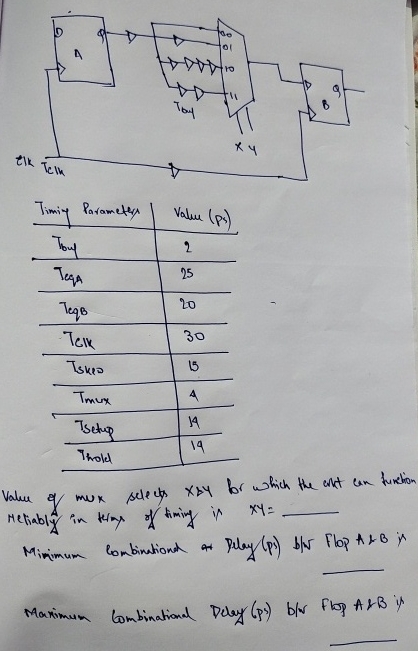 D Q
A
00
01
10
11
Tbuf
X Y
Q
B
Clk Tclk
Timing Parameters Value (ps)
Tbuf 2
TcqA 25
TcqB 20
Tclk 30
Tskew 15
Tmux 4
Tsetup 14
Thold 19
Value of mux selects X&Y for which the ckt can function
reliably in terms of timing is XY = ____
Minimum Combinational Delay (ps) b/w Flop A & B is
____
Maximum Combinational Delay (ps) b/w Flop A & B is
____